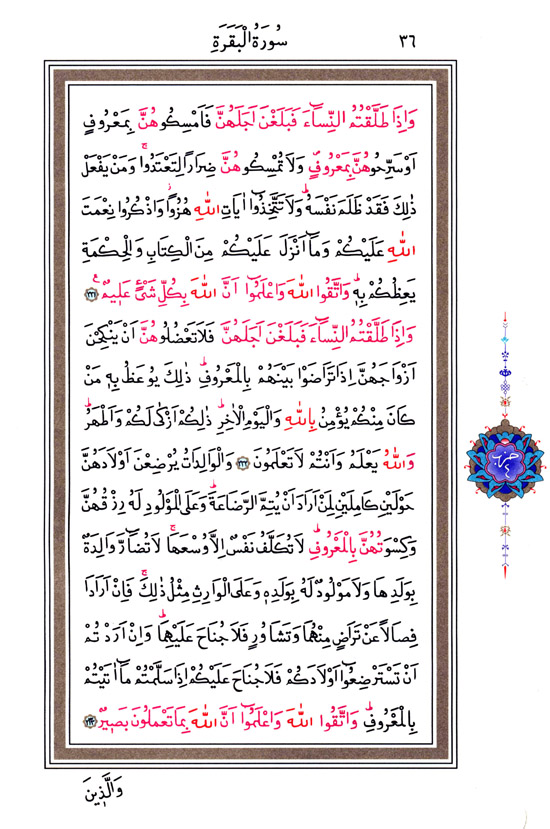 ٣٦ سُورَةُ الْبَقَرَةِ
وَاِذَا طَلَّقْتُمُ النِّسَٓاءَ فَبَلَغْنَ اَجَلَهُنَّ فَاَمْسِكُوهُنَّ بِمَعْرُوفٍ
اَوْ سَرِّحُوهُنَّ بِمَعْرُوفٍۖ وَلَا تُمْسِكُوهُنَّ ضِرَارًا لِتَعْتَدُواۚ وَمَنْ يَفْعَلْ
ذٰلِكَ فَقَدْ ظَلَمَ نَفْسَهُۜ وَلَا تَتَّخِذُٓوا اٰيَاتِ اللّٰهِ هُزُوًاۘ وَاذْكُرُوا نِعْمَتَ
اللّٰهِ عَلَيْكُمْ وَمَٓا اَنْزَلَ عَلَيْكُمْ مِنَ الْكِتَابِ وَالْحِكْمَةِ
يَعِظُكُمْ بِهٖۜ وَاتَّقُوا اللّٰهَ وَاعْلَمُٓوا اَنَّ اللّٰهَ بِكُلِّ شَيْءٍ عَلٖيمٌࣖ ٢٣١
وَاِذَا طَلَّقْتُمُ النِّسَٓاءَ فَبَلَغْنَ اَجَلَهُنَّ فَلَا تَعْضُلُوهُنَّ اَنْ يَنْكِحْنَ
اَزْوَاجَهُنَّ اِذَا تَرَاضَوْا بَيْنَهُمْ بِالْمَعْرُوفِۜ ذٰلِكَ يُوعَظُ بِهٖ مَنْ
كَانَ مِنْكُمْ يُؤْمِنُ بِاللّٰهِ وَالْيَوْمِ الْاٰخِرِۜ ذٰلِكُمْ اَزْكٰى لَكُمْ وَاَطْهَرُۜ
وَاللّٰهُ يَعْلَمُ وَاَنْتُمْ لَا تَعْلَمُونَ ٢٣٢ وَالْوَالِدَاتُ يُرْضِعْنَ اَوْلَادَهُنَّ
حَوْلَيْنِ كَامِلَيْنِ لِمَنْ اَرَادَ اَنْ يُتِمَّ الرَّضَاعَةَۜ وَعَلَى الْمَوْلُودِ لَهُ رِزْقُهُنَّ
وَكِسْوَتُهُنَّ بِالْمَعْرُوفِۜ لَا تُكَلَّفُ نَفْسٌ اِلَّا وُسْعَهَاۚ لَا تُضَٓارَّ وَالِدَةٌ
بِوَلَدِهَا وَلَا مَوْلُودٌ لَهُ بِوَلَدِهٖ وَعَلَى الْوَارِثِ مِثْلُ ذٰلِكَۚ فَاِنْ اَرَادَا
فِصَالًا عَنْ تَرَاضٍ مِنْهُمَا وَتَشَاوُرٍ فَلَا جُنَاحَ عَلَيْهِمَاۜ وَاِنْ اَرَدْتُمْ
اَنْ تَسْتَرْضِعُٓوا اَوْلَادَكُمْ فَلَا جُنَاحَ عَلَيْكُمْ اِذَا سَلَّمْتُمْ مَٓا اٰتَيْتُمْ
بِالْمَعْرُوفِۜ وَاتَّقُوا اللّٰهَ وَاعْلَمُٓوا اَنَّ اللّٰهَ بِمَا تَعْمَلُونَ بَصٖيرٌ ٢٣٣
وَالَّذٖينَ
حزب ٤